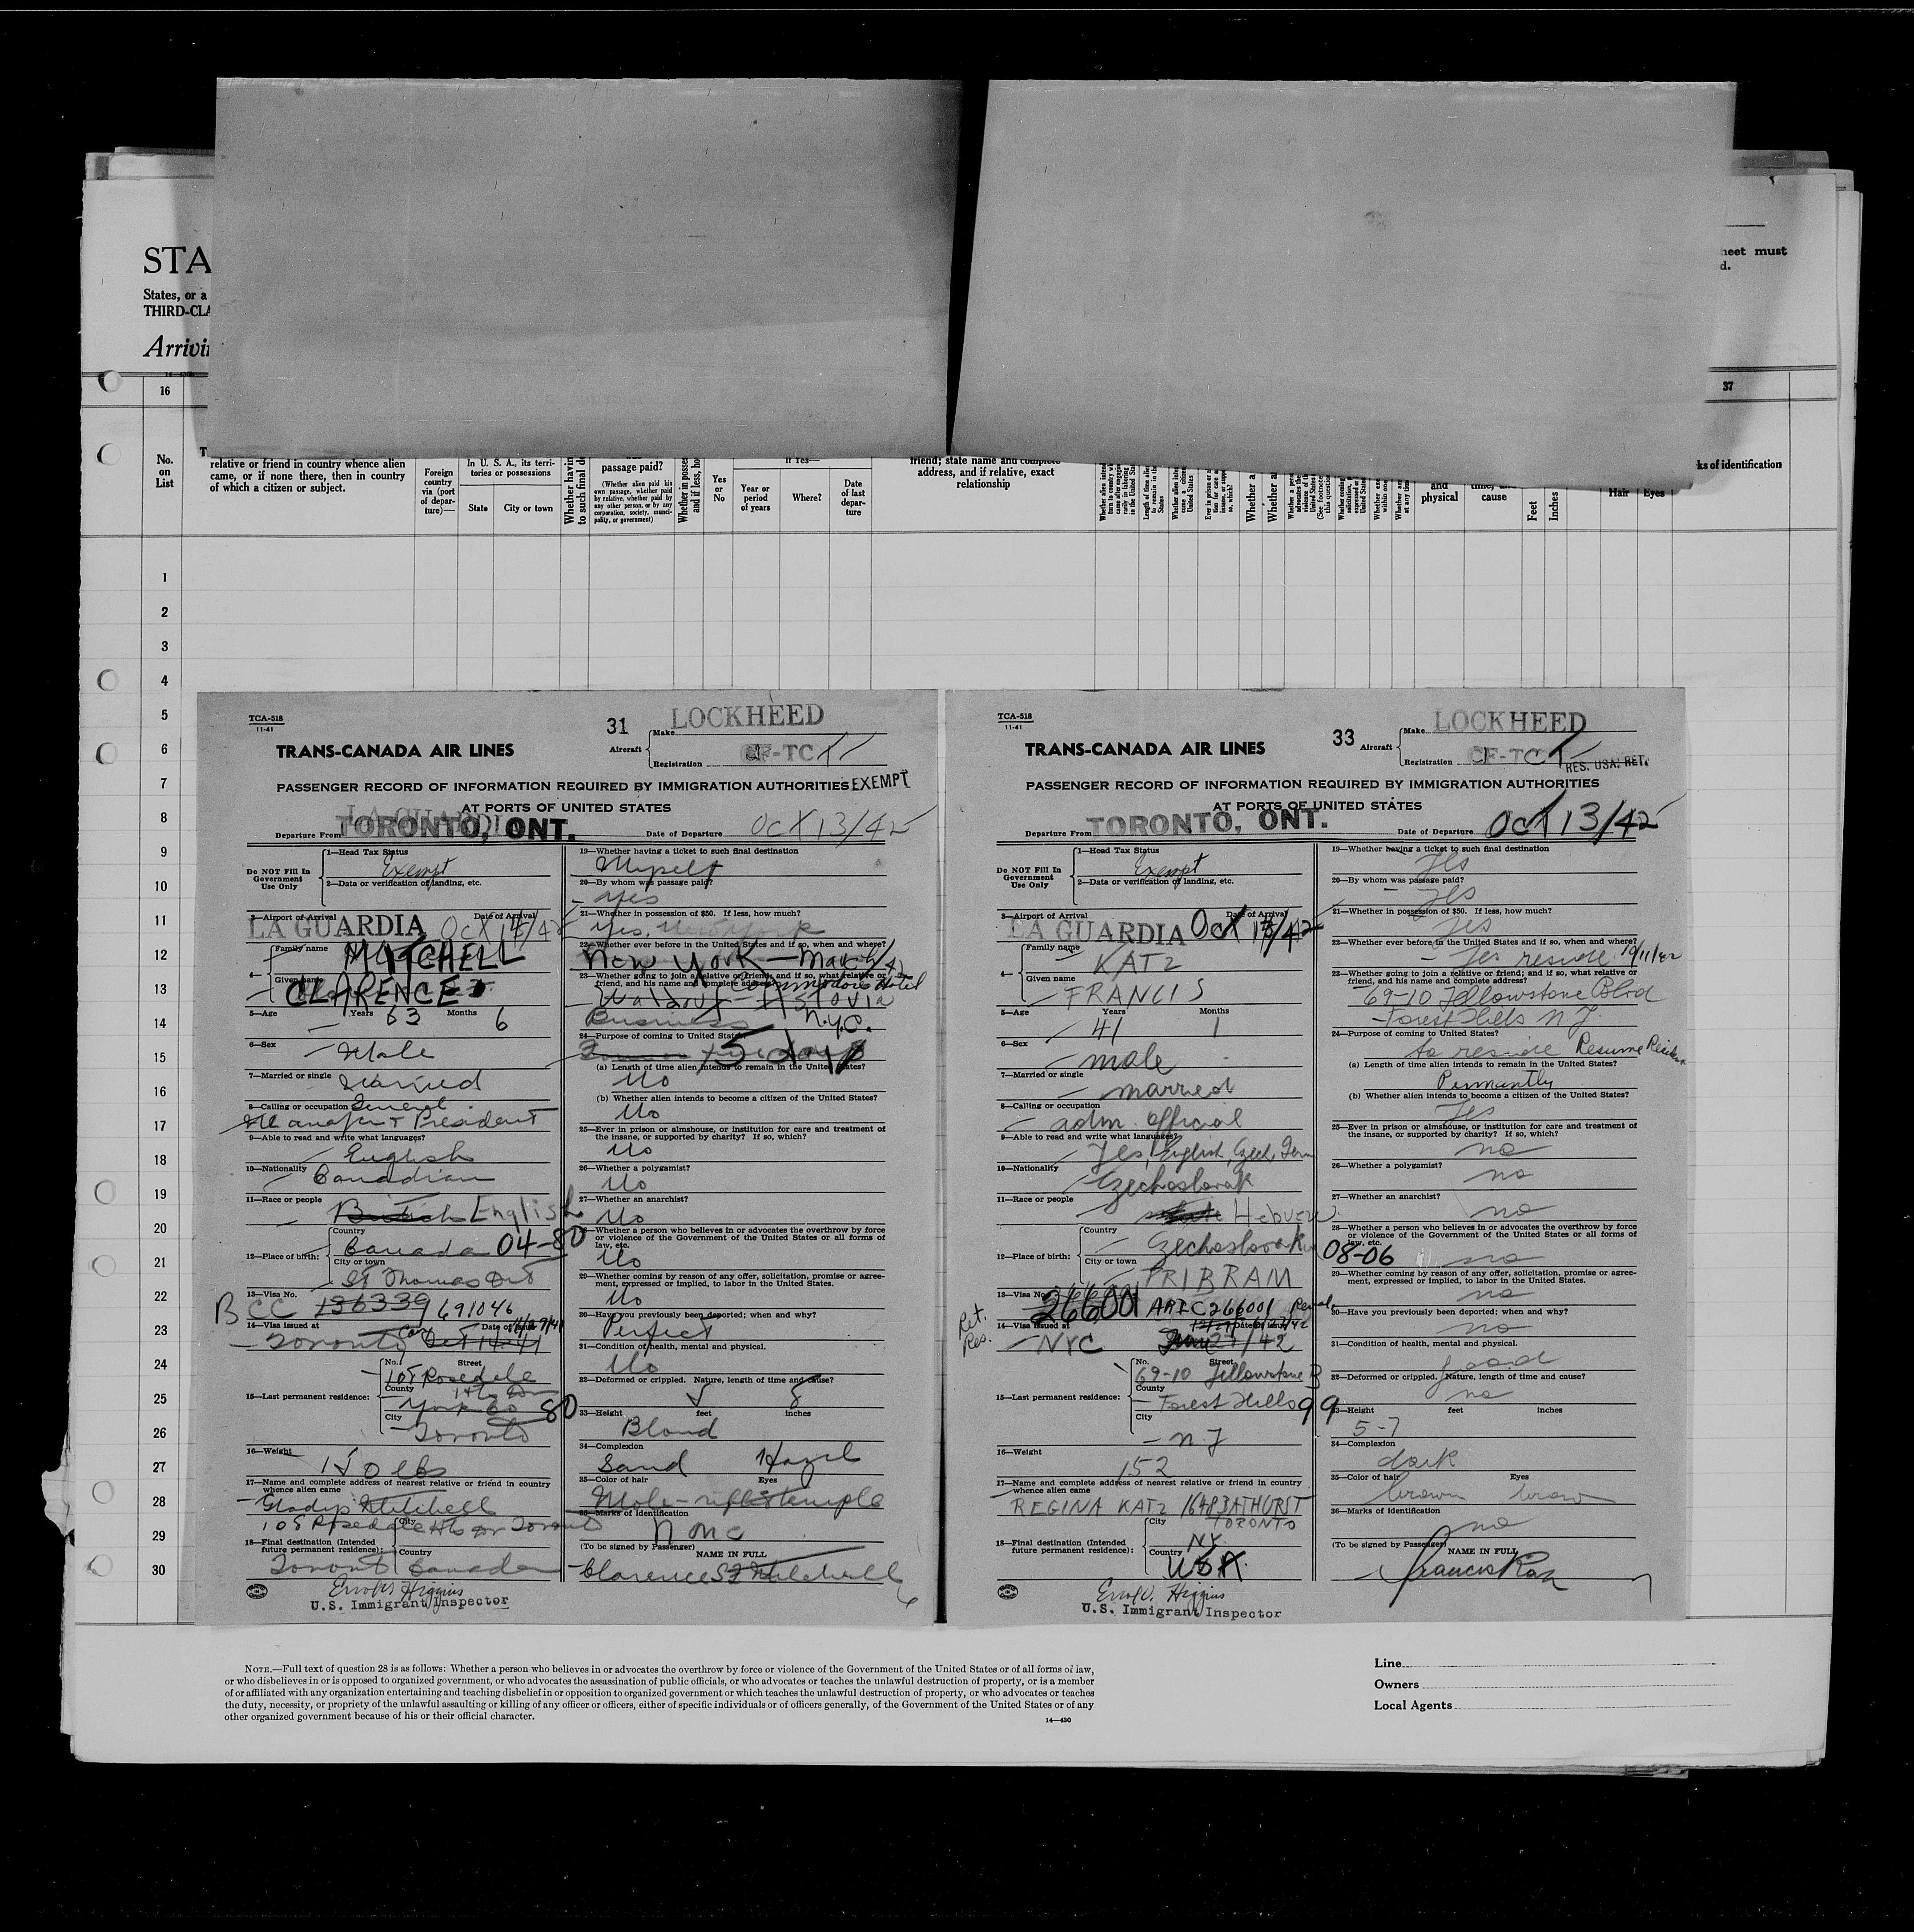 STA
States, or a
THIRD-CLA
Arrivi
heet must
d.
16
37
No.
on
List
relative or friend in country whence alien
came, or if none there, then in country
of which a citizen or subject.
Foreign
country
via (port
of depar-
ture)—
In U. S. A., its terri-
tories or possessions
State
City or town
Whether having
to such final de
passage paid?
(Whether alien paid his
own passage, whether paid
by relative, whether paid by
any other person, or by any
corporation, society, munici-
pality, or government)
Whether in possess
and if less, ho
Yes
or
No
If Yes—
Year or
period
of years
Where?
Date
of last
depar-
ture
friend; state name and complete
address, and if relative, exact
relationship
and
physical
cause
Feet
Inches
Hair
Eyes
ks of identification
1
2
3
4
5
6
7
8
9
10
11
12
13
14
15
16
17
18
19
20
21
22
23
24
25
26
27
28
29
30
TCA-518
11-41
31
LOCKHEED
TRANS-CANADA AIR LINES
Aircraft
Make
Registration
CF-TC
PASSENGER RECORD OF INFORMATION REQUIRED BY IMMIGRATION AUTHORITIES EXEMPT
AT PORTS OF UNITED STATES
LA GUARDIA
Departure From TORONTO, ONT.
Date of Departure Oct 13/42
Do NOT Fill In
Government
Use Only
1—Head Tax Status
Exempt
2—Data or verification of landing, etc.
3—Airport of Arrival
Date of Arrival
LA GUARDIA Oct 13/42
4—
Family name
MITCHELL
Given name
CLARENCE
5—Age Years 63 Months 6
6—Sex
Male
7—Married or single
Married
8—Calling or occupation General
Manager & President
9—Able to read and write what languages?
English
10—Nationality
Canadian
11—Race or people
British English
12—Place of birth:
Country
Canada 04-80
City or town
St Thomas Ont
13—Visa No.
BCC 136339 691046
14—Visa issued at
Date of issue
Toronto Can Oct 14-41
15—Last permanent residence:
No. Street
108 Rosedale
County
York Co 80
City
Toronto
16—Weight
150 lbs
17—Name and complete address of nearest relative or friend in country
whence alien came
Gladys Mitchell
108 Rosedale Hts Dr Toronto
18—Final destination (Intended
future permanent residence):
City
Country
Toronto Canada
Errol V. Higgins
U.S. Immigrant Inspector
19—Whether having a ticket to such final destination
Myself
20—By whom was passage paid?
Yes
21—Whether in possession of $50. If less, how much?
Yes, New York
22—Whether ever before in the United States and if so, when and where?
New York — May
23—Whether going to join a relative or friend; and if so, what relative or
friend, and his name and complete address?
Commodore Hotel
Waldorf-Astovia
Business N.Y.C.
24—Purpose of coming to United States?
5 days
(a) Length of time alien intends to remain in the United States?
No
(b) Whether alien intends to become a citizen of the United States?
No
25—Ever in prison or almshouse, or institution for care and treatment of
the insane, or supported by charity? If so, which?
No
26—Whether a polygamist?
No
27—Whether an anarchist?
No
28—Whether a person who believes in or advocates the overthrow by force
or violence of the Government of the United States or all forms of
law, etc.
No
29—Whether coming by reason of any offer, solicitation, promise or agree-
ment, expressed or implied, to labor in the United States.
No
30—Have you previously been deported; when and why?
Perfect
31—Condition of health, mental and physical.
No
32—Deformed or crippled. Nature, length of time and cause?
5 8
33—Height feet inches
Blond
34—Complexion
Sand Hazel
35—Color of hair Eyes
Mole - right temple
36—Marks of identification
None
(To be signed by Passenger)
NAME IN FULL
Clarence St Mitchell
6
TCA-518
11-41
33
LOCKHEED
TRANS-CANADA AIR LINES
Aircraft
Make
Registration
CF-TCT
RES. USA. RET.
PASSENGER RECORD OF INFORMATION REQUIRED BY IMMIGRATION AUTHORITIES
AT PORTS OF UNITED STATES
Departure From TORONTO, ONT.
Date of Departure Oct 13/42
Do NOT Fill In
Government
Use Only
1—Head Tax Status
Exempt
2—Data or verification of landing, etc.
3—Airport of Arrival
Date of Arrival
LA GUARDIA Oct 13/42
4—
Family name
KATZ
Given name
FRANCIS
5—Age Years 41 Months 1
6—Sex
male
7—Married or single
married
8—Calling or occupation
adm. official
9—Able to read and write what languages?
Yes, English, Czech, Germ
10—Nationality
Czechoslovak
11—Race or people
Hebrew
12—Place of birth:
Country
Czechoslovakia 08-06
City or town
PRIBRAM
13—Visa No.
266001 ARIC266001
Ret.
Res.
14—Visa issued at
Date of issue
NYC 27/42
15—Last permanent residence:
No. Street
69-10 Yellowstone B
County
Forest Hills 99
City
N.Y
16—Weight
152
17—Name and complete address of nearest relative or friend in country
whence alien came
REGINA KATZ 1648 BATHURST
TORONTO
18—Final destination (Intended
future permanent residence):
City
NY
Country
USA
Errol V. Higgins
U.S. Immigrant Inspector
19—Whether having a ticket to such final destination
Yes
20—By whom was passage paid?
Yes
21—Whether in possession of $50. If less, how much?
Yes
22—Whether ever before in the United States and if so, when and where?
Yes reside 10/11/42
23—Whether going to join a relative or friend; and if so, what relative or
friend, and his name and complete address?
69-10 Yellowstone Blvd
Forest Hills N Y.
24—Purpose of coming to United States?
to reside Resume Residen
(a) Length of time alien intends to remain in the United States?
Permantly
(b) Whether alien intends to become a citizen of the United States?
Yes
25—Ever in prison or almshouse, or institution for care and treatment of
the insane, or supported by charity? If so, which?
no
26—Whether a polygamist?
no
27—Whether an anarchist?
no
28—Whether a person who believes in or advocates the overthrow by force
or violence of the Government of the United States or all forms of
law, etc.
no
29—Whether coming by reason of any offer, solicitation, promise or agree-
ment, expressed or implied, to labor in the United States.
no
30—Have you previously been deported; when and why?
no
31—Condition of health, mental and physical.
good
32—Deformed or crippled. Nature, length of time and cause?
no
33—Height feet inches
5-7
34—Complexion
dark
35—Color of hair Eyes
brown brown
36—Marks of identification
no
(To be signed by Passenger)
NAME IN FULL
Francis Katz
7
NOTE.—Full text of question 28 is as follows: Whether a person who believes in or advocates the overthrow by force or violence of the Government of the United States or of all forms of law,
or who disbelieves in or is opposed to organized government, or who advocates the assassination of public officials, or who advocates or teaches the unlawful destruction of property, or is a member
of or affiliated with any organization entertaining and teaching disbelief in or opposition to organized government or which teaches the unlawful destruction of property, or who advocates or teaches
the duty, necessity, or propriety of the unlawful assaulting or killing of any officer or officers, either of specific individuals or of officers generally, of the Government of the United States or of any
other organized government because of his or their official character.
14—430
Line
Owners
Local Agents